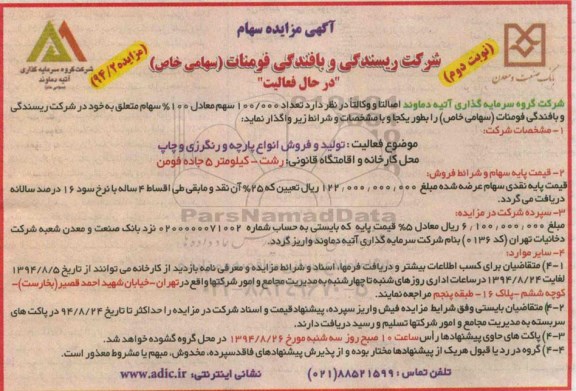 آگهی مزایده سهام
شرکت ریسندگی و بافندگی فومنات (سهامی خاص)
"در حال فعالیت"
(نوبت دوم)
(مزایده ۹۴/۲)
بانک صنعت و معدن
شرکت گروه سرمایه گذاری
آتیه دماوند
شرکت گروه سرمایه گذاری آتیه دماوند اصالتا و وکالتا در نظر دارد تعداد ۱۰۰/۰۰۰ سهم معادل ۱۰۰% سهام متعلق به خود در شرکت ریسندگی
و بافندگی فومنات (سهامی خاص) را بطور یکجا و با مشخصات و شرائط زیر واگذار نماید:
۱- مشخصات شرکت:
موضوع فعالیت: تولید و فروش انواع پارچه و رنگرزی و چاپ
محل کارخانه و اقامتگاه قانونی: رشت - کیلومتر ۵ جاده فومن
۲- قیمت پایه سهام و شرائط فروش:
قیمت پایه نقدی سهام عرضه شده مبلغ ۱۲۲,۰۰۰,۰۰۰,۰۰۰ ریال تعیین که ۲۵% آن نقد و مابقی طی اقساط ۴ ساله با نرخ سود ۱۶ درصد سالانه
دریافت می گردد.
۳- سپرده شرکت در مزایده:
مبلغ ۶,۱۰۰,۰۰۰,۰۰۰ ریال معادل ۵% قیمت پایه که بایستی به حساب شماره ۰۲۰۰۰۰۰۰۷۱۰۰۲ نزد بانک صنعت و معدن شعبه شرکت
دخانیات تهران (کد ۰۱۳۶) بنام شرکت سرمایه گذاری آتیه دماوند واریز گردد.
۴- سایر موارد:
۴-۱) متقاضیان برای کسب اطلاعات بیشتر و دریافت فرمها، اسناد و شرائط مزایده و معرفی نامه بازدید از کارخانه می توانند از تاریخ ۱۳۹۴/۸/۵
لغایت ۱۳۹۴/۸/۲۴ در ساعات اداری روزهای شنبه تا چهارشنبه به مدیریت مجامع و امور شرکتها واقع در تهران - خیابان شهید احمد قصیر (بخارست) -
کوچه ششم - پلاک ۱۶ - طبقه پنجم مراجعه نمایند.
۴-۲) متقاضیان بایستی وفق شرایط مزایده فیش واریز سپرده، پیشنهاد قیمت و اسناد شرکت در مزایده را حداکثر تا تاریخ ۹۴/۸/۲۴ در پاکت های
سربسته به مدیریت مجامع و امور شرکتها تسلیم و رسید دریافت دارند.
۴-۳) پاکت های حاوی پیشنهادها رأس ساعت ۱۰ صبح روز سه شنبه مورخ ۱۳۹۴/۸/۲۶ در محل گروه گشوده خواهد شد.
۴-۴) گروه در رد یا قبول هریک از پیشنهادها مختار بوده و از پذیرش پیشنهادهای فاقد سپرده، مخدوش، مبهم یا مشروط معذور است.
تلفن تماس: ۸۸۵۲۱۵۹۹ (۰۲۱)
نشانی اینترنتی: www.adic.ir
ParsNamadData